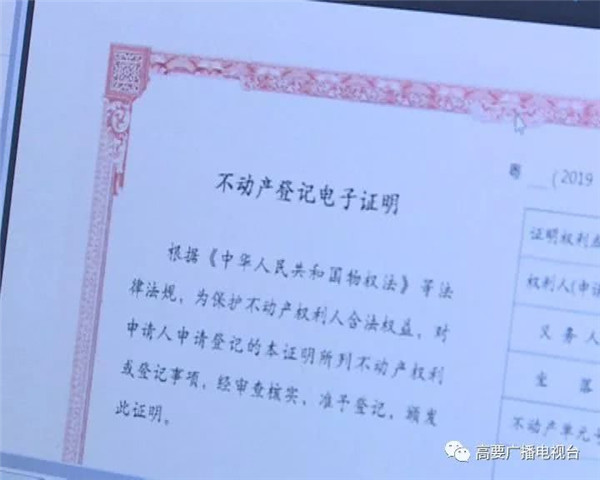 不动产登记电子证明
根据《中华人民共和国物权法》等法
律法规，为保护不动产权利人合法权益，对
申请人申请登记的本证明所列不动产权利
或登记事项，经审查核实，准予登记，颁发
此证明。
粤 （2019
证明权利
权利人(申请
义务人
坐落
不动产单元号
高要广播电视台